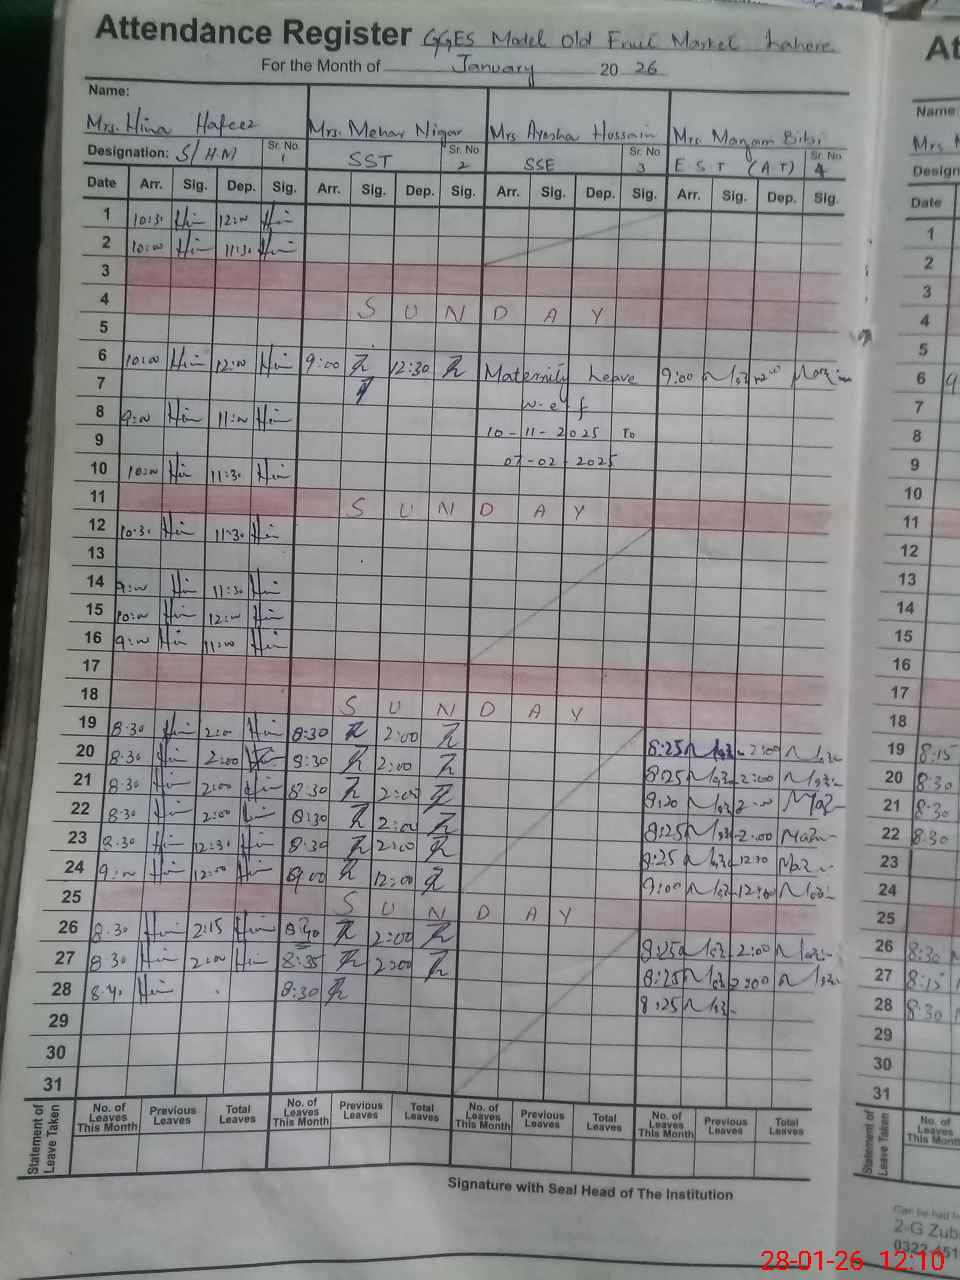 Attendance Register GGES Model Old Fruit Market Lahore
For the Month of January 2026
Name:
Mrs. Hina Hafeez Mrs. Mehar Nigar Mrs Ayesha Hussain Mrs. Maryam Bibi
Designation: S/HM Sr. No. 1 SST Sr. No 2 SSE Sr. No 3 E S T (A T) Sr. No 4
Date Arr. Sig. Dep. Sig. Arr. Sig. Dep. Sig. Arr. Sig. Dep. Sig. Arr. Sig. Dep. Sig.
1 10:30 12:00
2 10:00 11:30
3
4 S U N D A Y
5
6 10:00 12:00 9:00 12:30 Maternity Leave 9:00
7 w-e-f
8 9:00 11:00
9 10-11-2025 To
10 10:00 11:30 07-02-2025
11 S U N D A Y
12 10:30 11:30
13
14 9:00 11:30
15 10:00 12:00
16 9:00 11:00
17
18 S U N D A Y
19 8:30 2:00 8:30 2:00 8:25 2:00
20 8:30 2:00 8:30 2:00 8:25 2:00
21 8:30 2:00 8:30 2:00
22 8:30 2:00 8:30 2:00 8:25 2:00
23 8:30 12:30 8:30 8:25 12:30
24 9:00 12:00 9:00 12:00 9:00 12:00
25 S U N D A Y
26 8:30 2:15 2:00 8:25 2:00
27 8:30 2:00 8:35 2:00 8:25 2:00
28 8:40 8:30 8:25
29
30
31
Statement of Leave Taken
No. of Leaves This Month Previous Leaves Total Leaves No. of Leaves This Month Previous Leaves Total Leaves No. of Leaves This Month Previous Leaves Total Leaves No. of Leaves This Month Previous Leaves Total Leaves
Signature with Seal Head of The Institution
At
Name:
Mrs
Design
Date
1
2
3
4
5
6 9
7
8
9
10
11
12
13
14
15
16
17
18
19 8:15
20 8:30
21 8:30
22 8:30
23
24
25
26 8:30
27 8:15
28 8:30
29
30
31
Statement of Leave Taken
No. of Leaves This Month
Can be had
2-G Zub
28-01-26 12:10